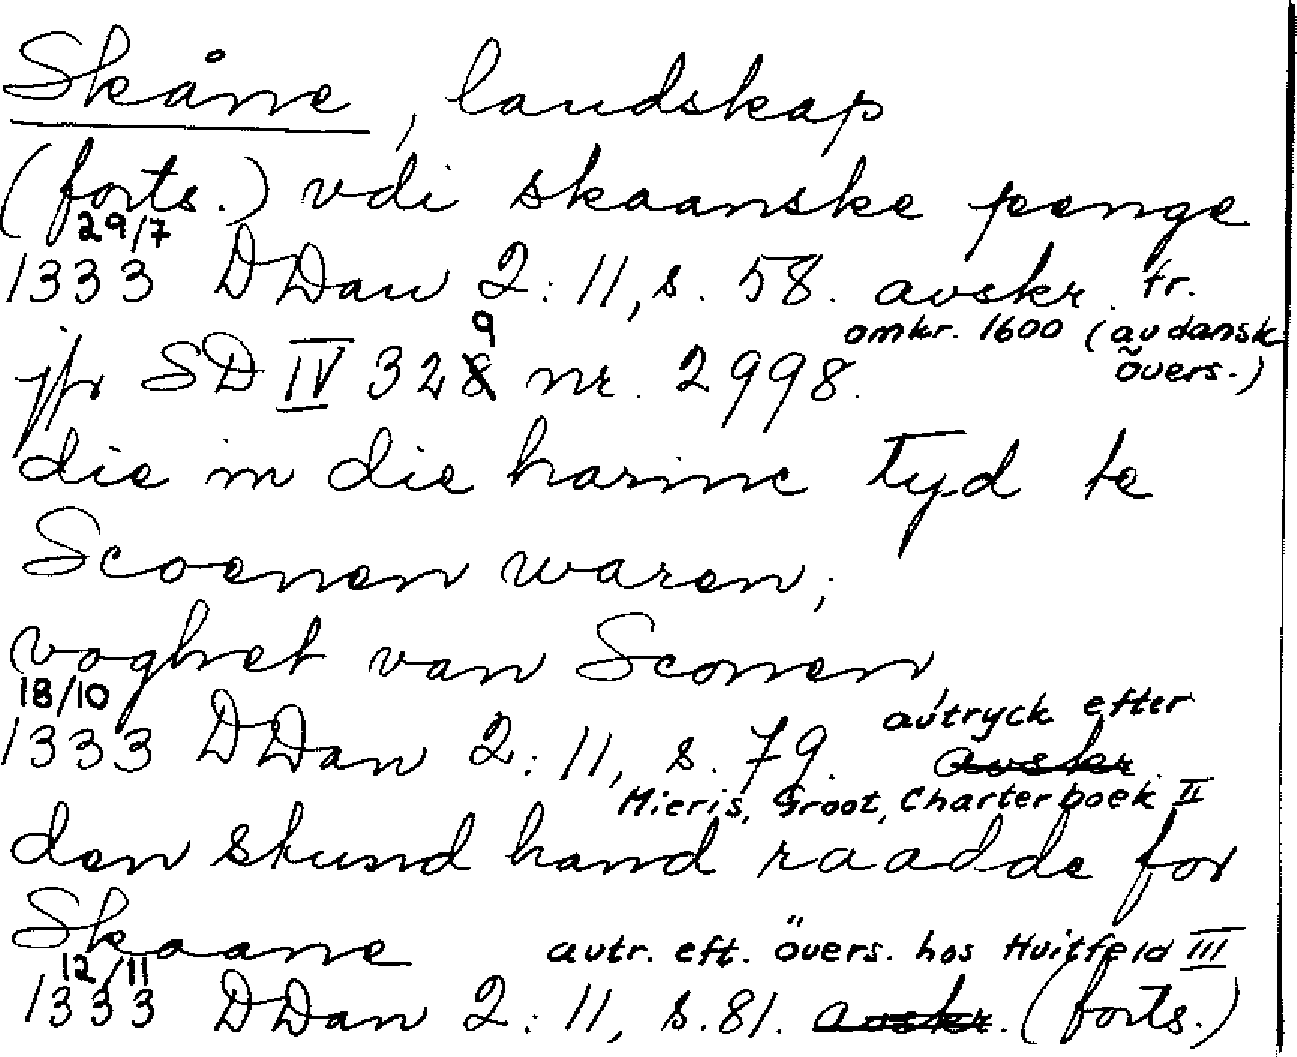 Skåne, landskap
(forts.) vdi skaanske penge
29/7
1333 DDan 2:11, s. 58. avskr. fr.
omkr. 1600 (av dansk
övers.)
jfr SD IV 329 nr. 2998.
die in die harinc tyd te
Scoenen waren;
voghet van Sconen
18/10
1333 DDan 2:11, s. 79. avtryck efter
avskr.
Mieris, Groot, Charterboek II
den stund hand raadde for
Skaane avtr. eft. övers. hos Huitfeld III
12/11
1333 DDan 2:11, s. 81. avskr. (forts.)